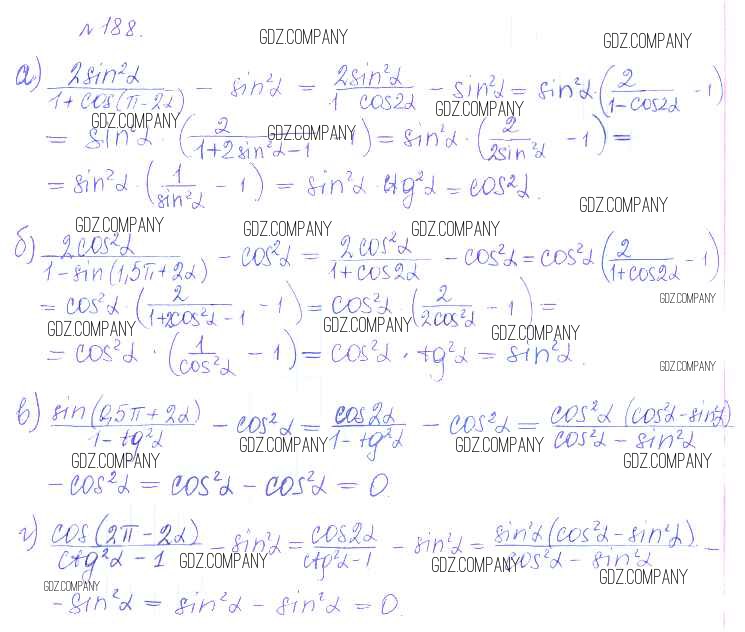 №188.
GDZ.COMPANY GDZ.COMPANY
а) 2sin²α/(1+cos(π-2α)) - sin²α = 2sin²α/(1 cos2α) - sin²α = sin²α·(2/(1-cos2α) - 1)
GDZ.COMPANY GDZ.COMPANY GDZ.COMPANY
= sin²α·(2/(1+2sin²α-1) - 1) = sin²α·(2/(2sin²α) - 1) =
= sin²α·(1/sin²α - 1) = sin²α·ctg²α = cos²α.
GDZ.COMPANY
GDZ.COMPANY GDZ.COMPANY GDZ.COMPANY
б) 2cos²α/(1-sin(1,5π+2α)) - cos²α = 2cos²α/(1+cos2α) - cos²α = cos²α(2/(1+cos2α) - 1)
GDZ.COMPANY
= cos²α·(2/(1+2cos²α-1) - 1) = cos²α·(2/(2cos²α) - 1) =
GDZ.COMPANY GDZ.COMPANY GDZ.COMPANY
= cos²α·(1/cos²α - 1) = cos²α·tg²α = sin²α.
GDZ.COMPANY
в) sin(0,5π+2α)/(1-tg²α) - cos²α = cos2α/(1-tg²α) - cos²α = cos²α(cos²α-sin²α)/(cos²α-sin²α)
GDZ.COMPANY GDZ.COMPANY GDZ.COMPANY GDZ.COMPANY
- cos²α = cos²α - cos²α = 0.
г) cos(2π-2α)/(ctg²α-1) - sin²α = cos2α/(ctg²α-1) - sin²α = sin²α(cos²α-sin²α)/(cos²α-sin²α) -
GDZ.COMPANY GDZ.COMPANY GDZ.COMPANY GDZ.COMPANY
- sin²α = sin²α - sin²α = 0.